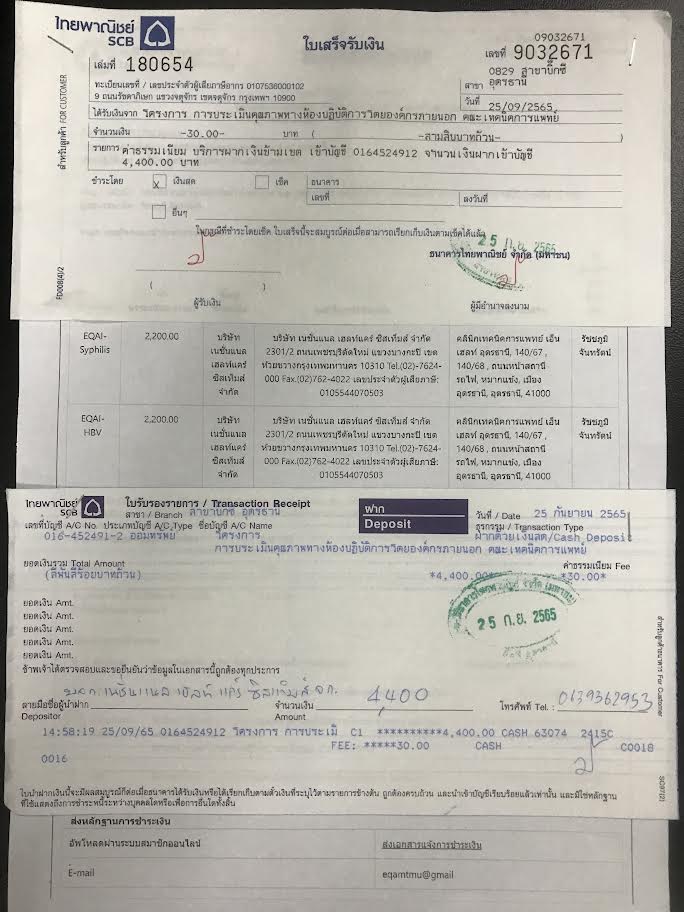 ไทยพาณิชย์
SCB
ใบเสร็จรับเงิน
09032671
เลขที่ 9032671
เล่มที่ 180654
0829 สาขาบิ๊กซี
สาขา อุดรธานี
ทะเบียนเลขที่ / เลขประจำตัวผู้เสียภาษีอากร 0107536000102
9 ถนนรัชดาภิเษก แขวงจตุจักร เขตจตุจักร กรุงเทพฯ 10900
วันที่ 25/09/2565
สำหรับลูกค้า FOR CUSTOMER
ได้รับเงินจาก วิโครงการ การประเมินคุณภาพทางห้องปฏิบัติการวิตยองค์กรภายนอก คณะเทคนิคการแพทย์
จำนวนเงิน -30.00- บาท ( -สามสิบบาทถ้วน- )
รายการ ค่าธรรมเนียม บริการฝากเงินข้ามเขต เข้าบัญชี 0164524912 จำนวนเงินฝากเข้าบัญชี
4,400.00 บาท
ชำระโดย x เงินสด เช็ค ธนาคาร
เลขที่ ลงวันที่
อื่นๆ
ในกรณีที่ชำระโดยเช็ค ใบเสร็จนี้จะสมบูรณ์ต่อเมื่อสามารถเรียกเก็บเงินตามเช็คได้แล้ว
25 ก.ย. 2565
ธนาคารไทยพาณิชย์ จำกัด (มหาชน)
( )
ผู้รับเงิน ผู้มีอำนาจลงนาม
FD008(4)/2
EQAI-Syphilis 2,200.00 บริษัท เนชั่นแนล เฮลท์แคร์ ซิสเท็มส์ จำกัด บริษัท เนชั่นแนล เฮลท์แคร์ ซิสเท็มส์ จำกัด 2301/2 ถนนเพชรบุรีตัดใหม่ แขวงบางกะปิ เขตห้วยขวางกรุงเทพมหานคร 10310 Tel.(02)-7624-000 Fax.(02)762-4022 เลขประจำตัวผู้เสียภาษี: 0105544070503 คลินิกเทคนิคการแพทย์ เอ็นเฮลท์ อุดรธานี, 140/67 , 140/68 , ถนนหน้าสถานีรถไฟ, หมากแข้ง, เมืองอุดรธานี, อุดรธานี, 41000 รัชชภูมิ จันทรัตน์
EQAI-HBV 2,200.00 บริษัท เนชั่นแนล เฮลท์แคร์ ซิสเท็มส์ จำกัด บริษัท เนชั่นแนล เฮลท์แคร์ ซิสเท็มส์ จำกัด 2301/2 ถนนเพชรบุรีตัดใหม่ แขวงบางกะปิ เขตห้วยขวางกรุงเทพมหานคร 10310 Tel.(02)-7624-000 Fax.(02)762-4022 เลขประจำตัวผู้เสียภาษี: 0105544070503 คลินิกเทคนิคการแพทย์ เอ็นเฮลท์ อุดรธานี, 140/67 , 140/68 , ถนนหน้าสถานีรถไฟ, หมากแข้ง, เมืองอุดรธานี, อุดรธานี, 41000 รัชชภูมิ จันทรัตน์
ไทยพาณิชย์
SCB
ใบรับรองรายการ / Transaction Receipt
ฝาก
Deposit
สาขา / Branch สาขาบิ๊กซี อุดรธานี
วันที่ / Date 25 กันยายน 2565
เลขที่บัญชี A/C No. ประเภทบัญชี A/C Type ชื่อบัญชี A/C Name
ธุรกรรม / Transaction Type
016-452491-2 ออมทรัพย์ วิโครงการ
ฝากด้วยเงินสด/Cash Deposit
การประเมินคุณภาพทางห้องปฏิบัติการวิตยองค์กรภายนอก คณะเทคนิคการแพทย์
ยอดเงินรวม Total Amount ค่าธรรมเนียม Fee
(สี่พันสี่ร้อยบาทถ้วน) *4,400.00* *30.00*
ยอดเงิน Amt.
ยอดเงิน Amt.
ยอดเงิน Amt.
ยอดเงิน Amt.
ยอดเงิน Amt.
25 ก.ย. 2565
ข้าพเจ้าได้ตรวจสอบและขอยืนยันว่าข้อมูลในเอกสารนี้ถูกต้องทุกประการ
บมจก.เนชั่นแนล เฮลท์แคร์ ซิสเท็มส์ จก. 4,400 0639362953
ลายมือชื่อผู้นำฝาก จำนวนเงิน โทรศัพท์ Tel. :
Depositor Amount
14:58:19 25/09/65 0164524912 วิโครงการ การประเมิ C1 **********4,400.00 CASH 63074 2415C
FEE: *****30.00 CASH C0018
0016
สำหรับลูกค้า For Customer
ใบนำฝากเงินนี้จะมีผลสมบูรณ์ก็ต่อเมื่อธนาคารได้รับเงินหรือได้เรียกเก็บเงินตามตั๋วเงินที่ระบุไว้ตามรายการข้างต้น ถูกต้องครบถ้วน และนำเข้าบัญชีเรียบร้อยแล้วเท่านั้น และมิใช่หลักฐาน
ที่ใช้แสดงถึงการชำระหนี้ระหว่างบุคคลใดหรือเพื่อการอื่นใดทั้งสิ้น
ส่งหลักฐานการชำระเงิน
อัพโหลดผ่านระบบสมาชิกออนไลน์ ส่งเอกสารแจ้งการชำระเงิน
E-mail eqamtmu@gmail